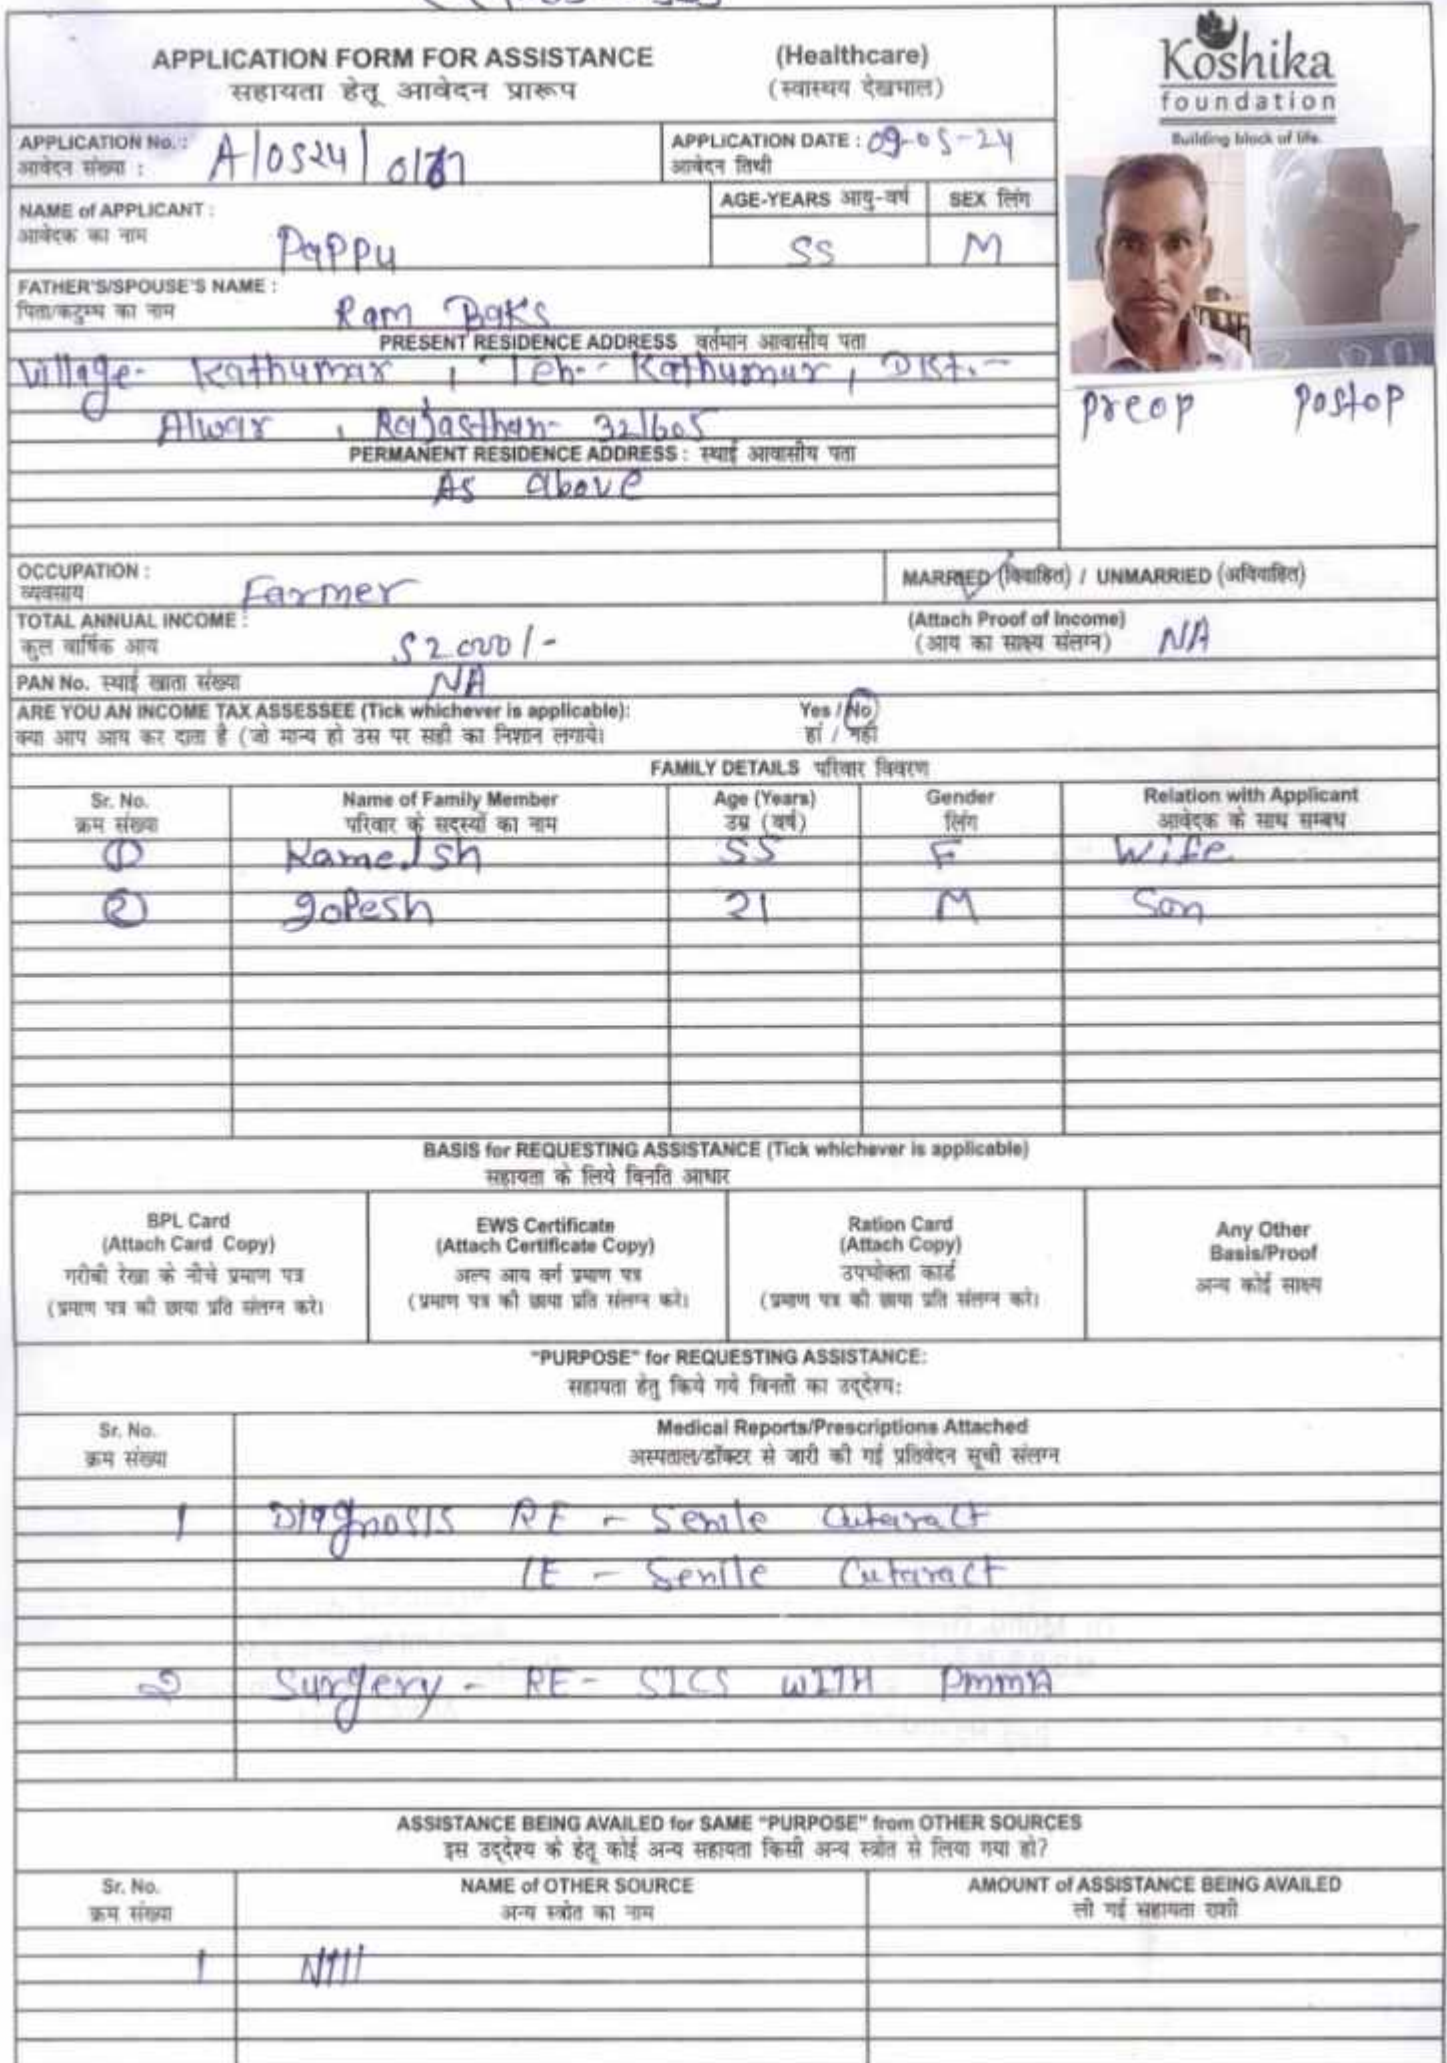 APPLICATION FORM FOR ASSISTANCE (Healthcare)
सहायता हेतू आवेदन प्रारूप (स्वास्थय देखभाल)
Koshika
foundation
Building block of life.
APPLICATION No. : A/0524/
आवेदन संख्या :
APPLICATION DATE : 09-05-24
आवेदन तिथी
NAME of APPLICANT : Pappu
आवेदक का नाम
AGE-YEARS आयु-वर्ष SEX लिंग
55 M
FATHER'S/SPOUSE'S NAME : Ram Baks
पिता/कटुम्ब का नाम
PRESENT RESIDENCE ADDRESS वर्तमान आवासीय पता
Village- Kathumar , Teh.- Kathumur, Dist.-
Alwar , Rajasthan- 321605
preop postop
PERMANENT RESIDENCE ADDRESS : स्थाई आवासीय पता
As above
OCCUPATION : Farmer
व्यवसाय
MARRIED (विवाहित) / UNMARRIED (अविवाहित)
TOTAL ANNUAL INCOME : 52000/-
कुल वार्षिक आय
(Attach Proof of Income) NA
(आय का साक्ष्य संलग्न)
PAN No. स्थाई खाता संख्या NA
ARE YOU AN INCOME TAX ASSESSEE (Tick whichever is applicable): Yes / No
क्या आप आय कर दाता है (जो मान्य हो उस पर सही का निशान लगाये। हां / नहीं
FAMILY DETAILS परिवार विवरण
Sr. No. Name of Family Member Age (Years) Gender Relation with Applicant
क्रम संख्या परिवार के सदस्यों का नाम उम्र (वर्ष) लिंग आवेदक के साथ सम्बध
1 Kamelsh 55 F Wife
2 gopesh 21 M Son
BASIS for REQUESTING ASSISTANCE (Tick whichever is applicable)
सहायता के लिये विनति आधार
BPL Card
(Attach Card Copy)
गरीबी रेखा के नीचे प्रमाण पत्र
(प्रमाण पत्र की छाया प्रति संलग्न करे।
EWS Certificate
(Attach Certificate Copy)
अल्प आय वर्ग प्रमाण पत्र
(प्रमाण पत्र की छाया प्रति संलग्न करे।
Ration Card
(Attach Copy)
उपभोक्ता कार्ड
(प्रमाण पत्र की छाया प्रति संलग्न करे।
Any Other
Basis/Proof
अन्य कोई साक्ष्य
"PURPOSE" for REQUESTING ASSISTANCE:
सहायता हेतु किये गये विनती का उद्देश्य:
Sr. No. Medical Reports/Prescriptions Attached
क्रम संख्या अस्पताल/डॉक्टर से जारी की गई प्रतिवेदन सूची संलग्न
1 Diagnosis RE - Senile Cutaract
LE - Senile Cutaract
2 Surgery - RE- SICS WITH PMMA
ASSISTANCE BEING AVAILED for SAME "PURPOSE" from OTHER SOURCES
इस उद्देश्य के हेतू कोई अन्य सहायता किसी अन्य स्त्रोत से लिया गया हो?
Sr. No. NAME of OTHER SOURCE AMOUNT of ASSISTANCE BEING AVAILED
क्रम संख्या अन्य स्त्रोत का नाम ली गई सहायता राशी
1 Nill